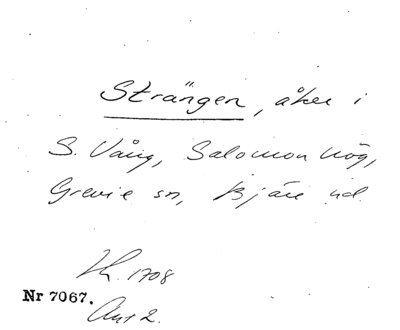 Strängen, åker i
S. Vång, Salomonhög,
Grevie sn, Bjäre hd.
Lh. 1708
Nr 7067.
Akt 2.